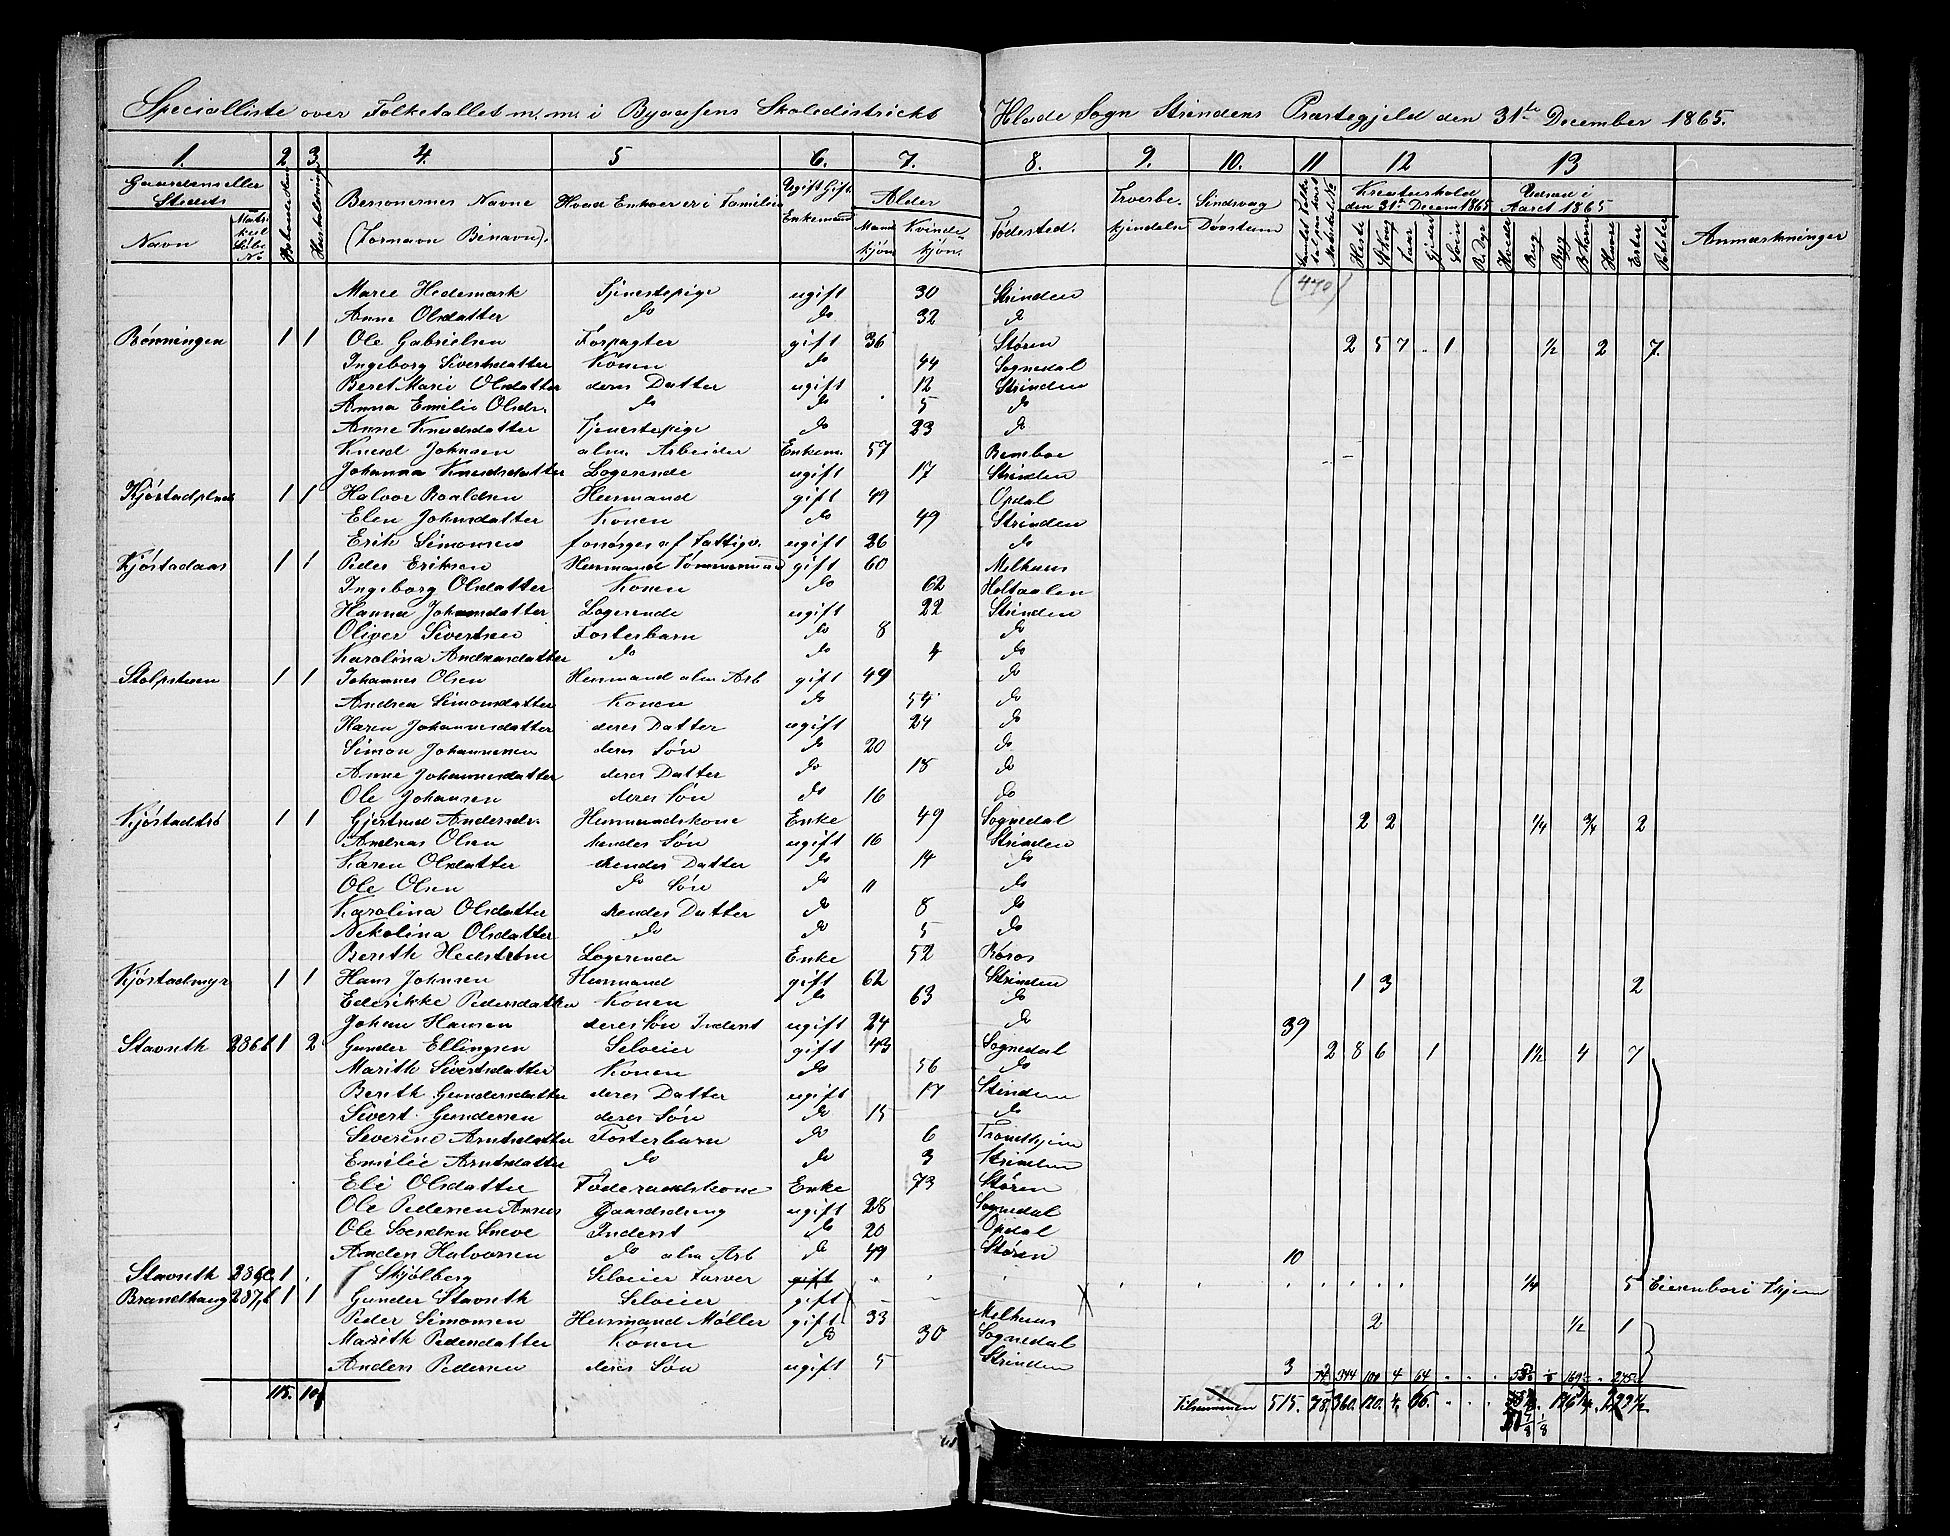 Specialliste over Folketallet m. m. i Byaasens Skoledistrickt Hlade Sogn Strindens Præstegjeld den 31te December 1865.
1. 2 3 4. 5 6. 7. 8. 9. 10. 11 12 13
Gaardens eller Stedets Navn Matrikul Løbe No Beboede Huse Husholdninger Personernes Navne (Fornavn Binavn). Hvad Enhver er i Familien Ugift Gift Enkemand Alder Mandkjøn Kvindekjøn. Fødested. Troesbekjendelse Sindsvag Døvstum Samlet Folketal paa hvert Matrikul No Kreaturhold den 31te Decem 1865 Heste Storq Faar Gjeder Sviin R. Dyr Udsæd i Aaret 1865 Hvede Rug Byg B Korn Havre Erter Poteter Anmærkninger
Marie Hedemark Tjenestepige ugift 30 Strinden (470)
Anne Olsdatter do do 32 do
Rønningen 1 1 Ole Gabrielsen Forpagter gift 36 Støren 2 5 7 . 1 ½ 2 7.
Ingeborg Sivertsdatter Konen do 44 Sognedal
Beret Marie Olsdatter deres Datter ugift 12 Strinden
Anna Emilie Olsdr. do do 5 do
Anne Knudsdatter Tjenestepige do 23 do
Knud Johnsen alm. Arbeider Enkem. 57
Johanna Knudsdatter Logerende ugift 17 Strinden
Kjøstadplads 1 1 Halvor Roaldsen Husmand gift 49 Opdal
Elen Johnsdatter Konen do 49 Strinden
Erik Simonsen forsørges af Fattigv. ugift 26 do
Kjøstadaas 1 1 Peder Eriksen Husmand Tømmermand gift 60 Melhuus
Ingeborg Olsdatter Konen do 62 Holtaalen
Hanna Johansdatter Logerende ugift 22 Strinden
Oliver Sivertsen Fosterbarn do 8 do
Karolina Andreasdatter do do 4 do
Stolpstuen 1 1 Johannes Olsen Husmand alm Arb gift 49 do
Andrea Simonsdatter Konen do 54 do
Karen Johannesdatter deres Datter ugift 24 do
Simon Johannesen deres Søn do 20 do
Anne Johannesdatter deres Datter do 18 do
Ole Johansen deres Søn do 16 do
Kjøstadtrø 1 1 Gjertrud Andersdr. Husmandskone Enke 49 Sognedal 2 2 ¼ ¾ 2
Andreas Olsen hendes Søn ugift 16 Strinden
Karen Olsdatter hendes Datter do 14 do
Ole Olsen do Søn do 11 do
Karolina Olsdatter hendes Datter do 8 do
Nikolina Olsdatter do do 5 do
Berith Hedstrøm Logerende Enke 52 Røros
Kjøstadmyr 1 1 Hans Johnsen Husmand gift 62 Strinden 1 3 2
Ederikke Pedersdatter Konen do 63 do
Johan Hansen deres Søn Inderst ugift 24 do 39
Stavseth 286b 1 2 Gunder Ellingsen Selveier gift 43 Sognedal 2 8 6 1 1½ 4 7
Marith Sivertsdatter Konen do 56 do
Berith Gundersdatter deres Datter ugift 17 Strinden
Sivert Gundersen deres Søn do 15 do
Severine Arntsdatter Fosterbarn do 6 Trondhjem
Emilie Arntsdatter do do 3 Strinden
Eli Olsdatter Føderaadskone Enke 73 Støren
Ole Pedersen Gaardsdreng ugift 28 Sognedal
Ole Sneve Inderst do 20 Opdal
Anders Halvorsen do alm Arb do 49 Støren 10
Stavseth 286c 1 . Skjølberg Selveier Farver gift ¼ 5 Eieren bor i Thjem
Brandhaug 287,b 1 1 Gunder Stavseth Selveier gift
Peder Simonsen Husmand Møller gift 33 Melhuus 2 ½ 1
Marith Pedersdatter Konen do 30 Sognedal
Anders Pedersen deres Søn ugift 5 Strinden 3 74 344 109 4 64
115. 108 Tilsammen 515. 78. 360. 120. 4. 66.